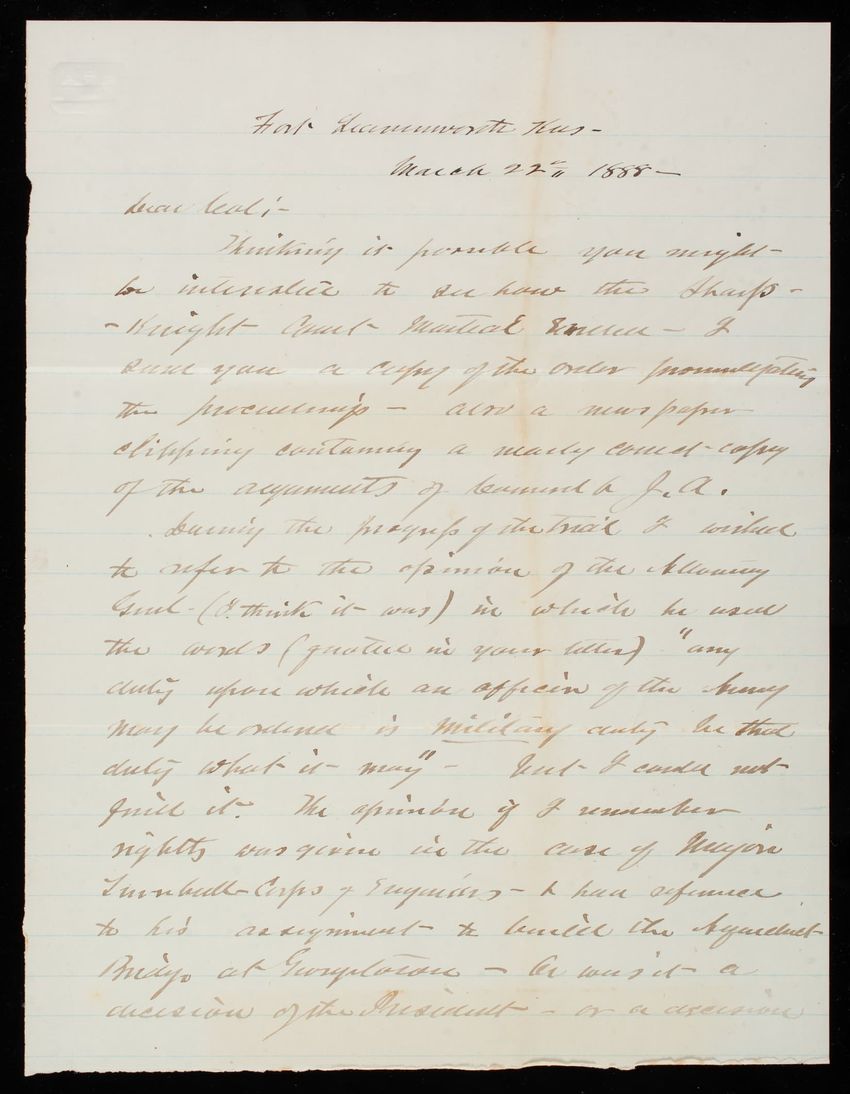 Fort Leavenworth Kas -
March 22" 1888 -
Dear Col; -
Thinking it possible you might
be interested to see how the Sharp -
- Knight Court Martial Ended - I
send you a copy of the order promulgating
the proceedings - also a newspaper
clipping containing a nearly correct copy
of the arguments of Counsel & J. A.
During the progress of the trial I wished
to refer to the opinion of the Attorney
Genl - (I think it was) in which he used
the words (quoted in your letter) "any
duty upon which an officer of the Army
may be ordered is military duty be that
duty what it may" - but I could not
find it. The opinion if I remember
rightly was given in the case of Major
Turnbull - Corps of Engineers - & had reference
to his assignment to build the Aqueduct
Bridge at Georgetown - Or was it a
decision of the President - or a decision